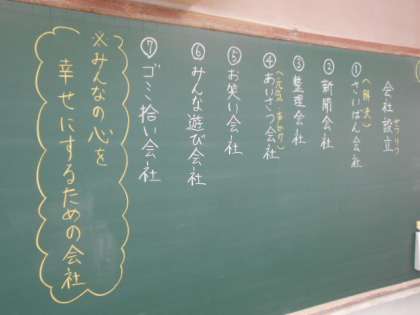 会社設立
せつりつ
①さいばん会社
(解決)
②新聞会社
③整理会社
④あいさつ会社
⑤お笑い会社
⑥みんな遊び会社
⑦ゴミ拾い会社
※みんなの心を
幸せにするための会社